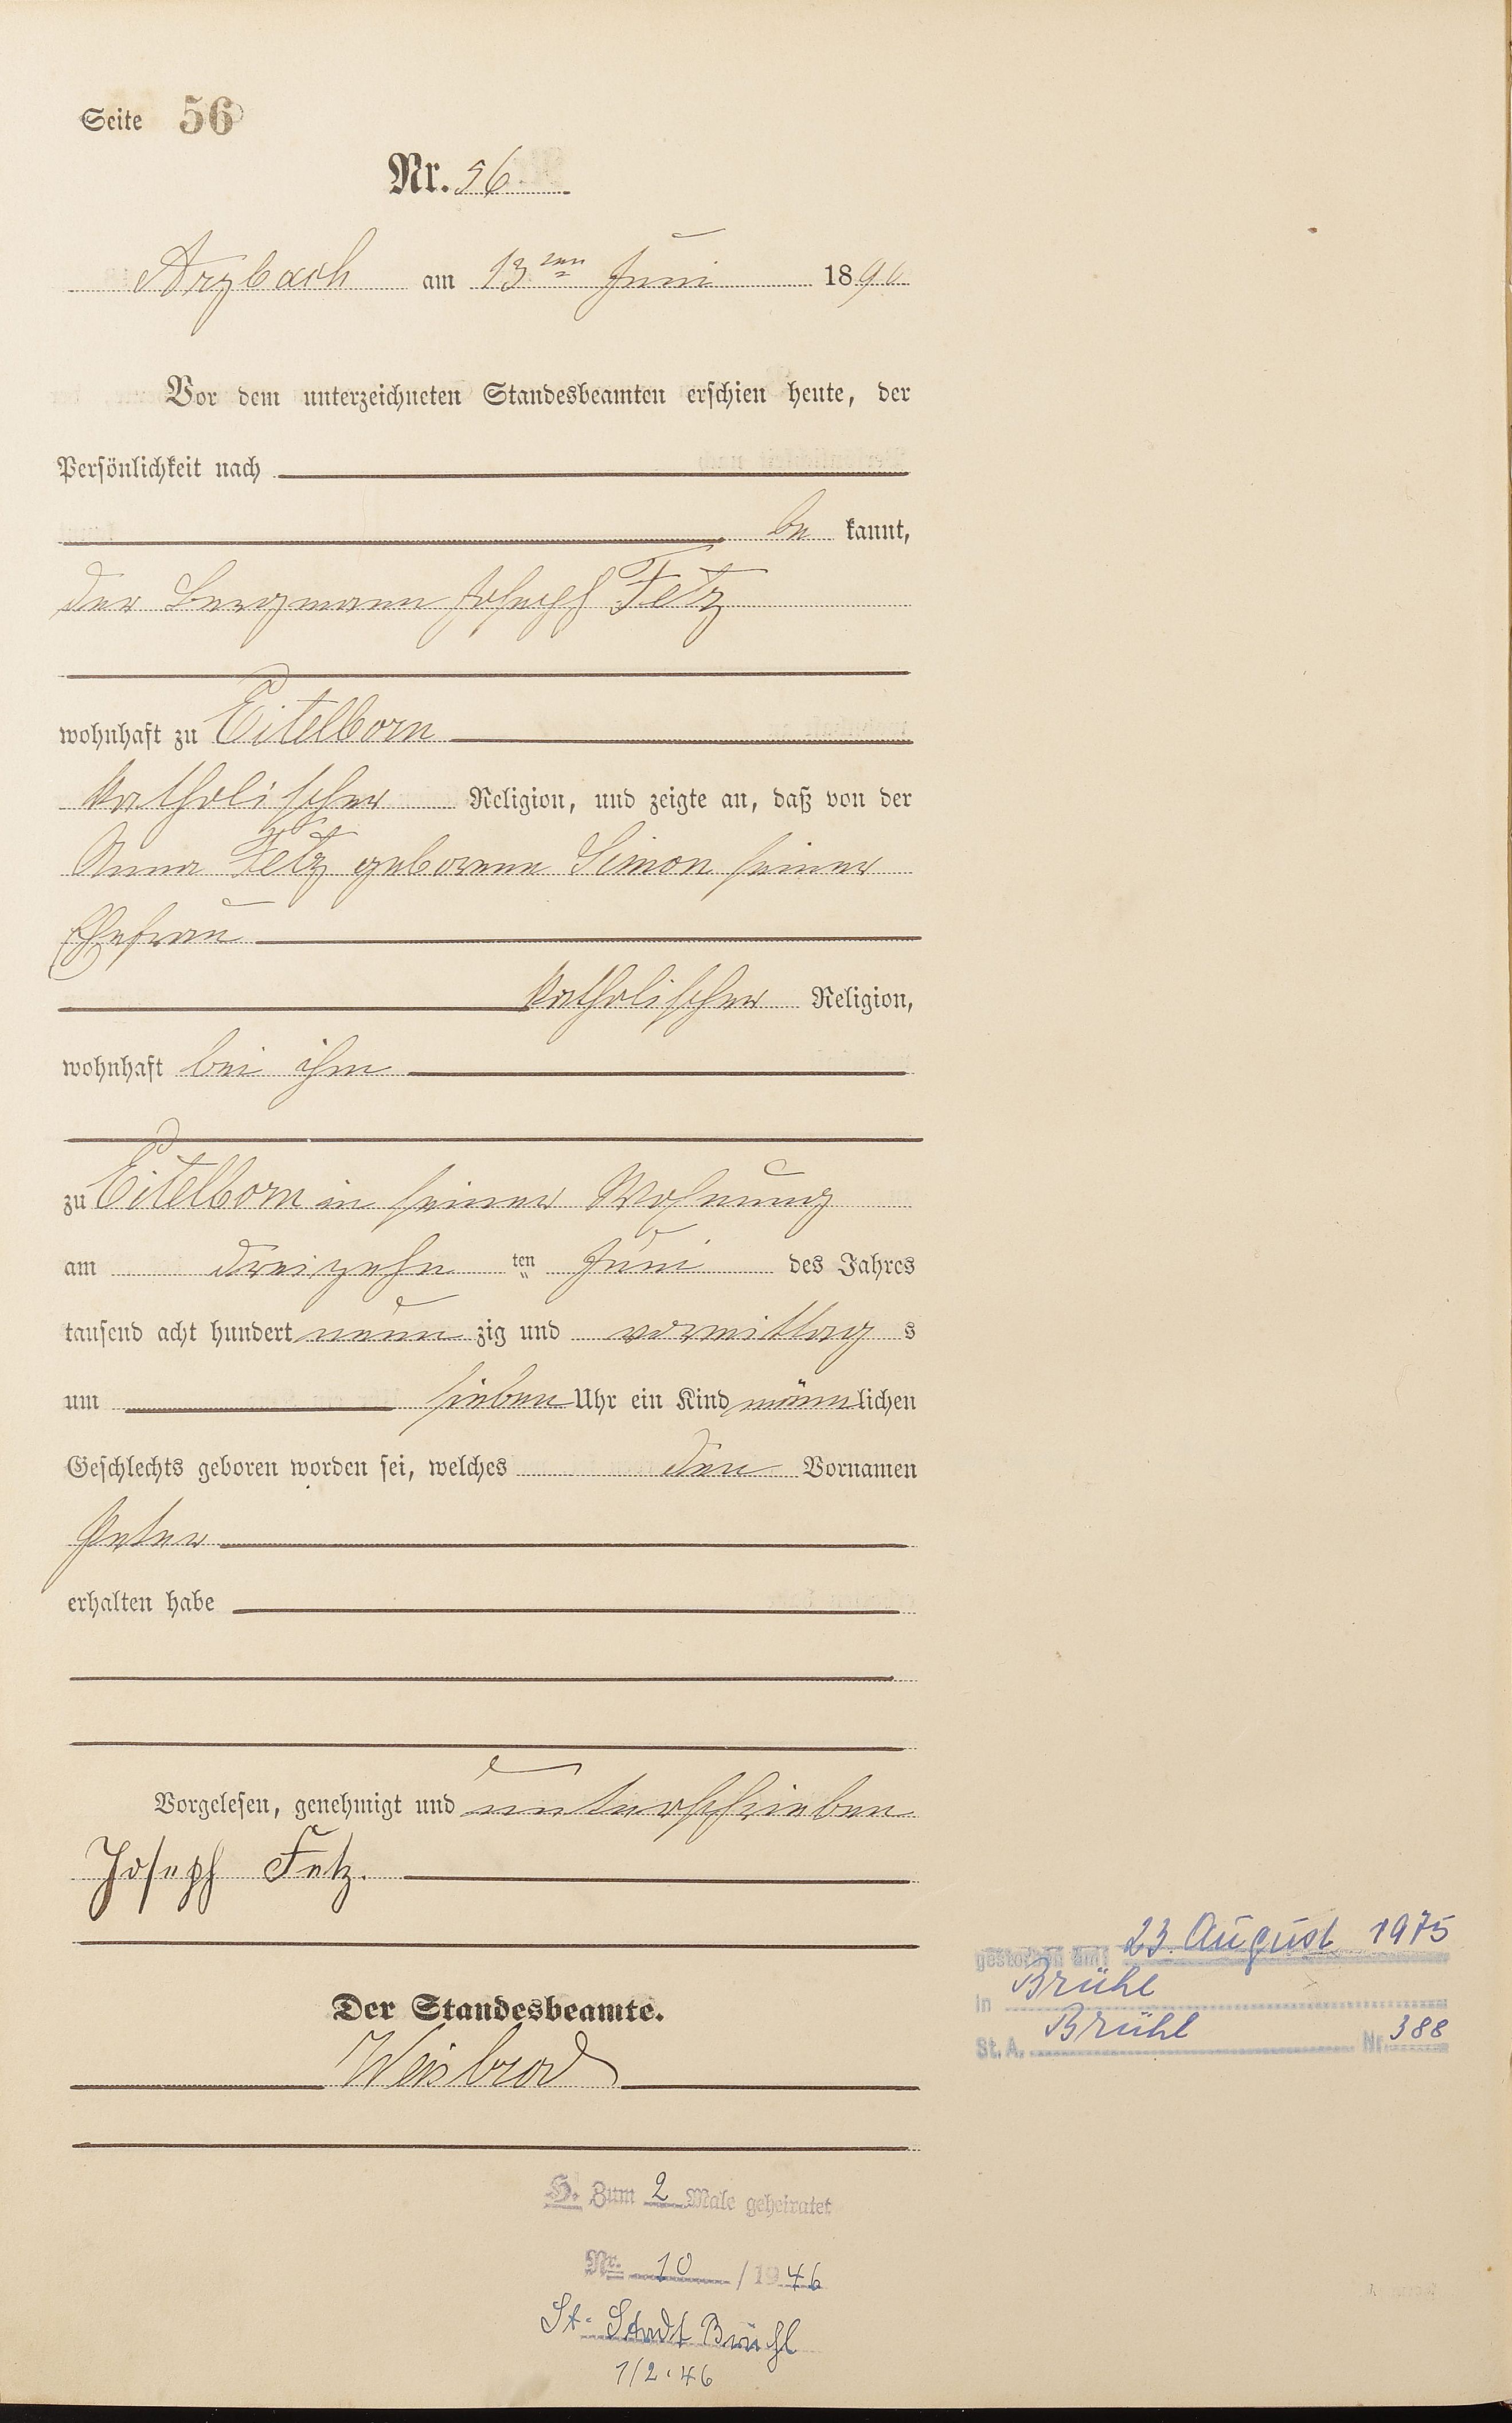 Seite 56
Nr. 56
Arzbach am 13ten Juni 1890
Vor dem unterzeichneten Standesbeamten erschien heute, der
Persönlichkeit nach
be kannt,
der Bergmann Joseph Fetz
wohnhaft zu Eitelborn
katholischer Religion, und zeigte an, daß von der
Anna Fetz geborene Simon seiner
Ehefrau
katholischer Religion,
wohnhaft bei ihm
zu Eitelborn in seiner Wohnung
am dreizehn ten Juni des Jahres
tausend acht hundert neun zig und vormittag s
um sieben Uhr ein Kind männlichen
Geschlechts geboren worden sei, welches den Vornamen
Peter
erhalten habe
Vorgelesen, genehmigt und unterschrieben
Joseph Fetz.
Der Standesbeamte.
Weisbrod
gestorben am: 23. August 1975
in Brühl
St. A. Brühl Nr. 388
H. Zum 2 Male geheiratet
Nr. 10 / 1946
St. Stadt Brühl
1/2.46